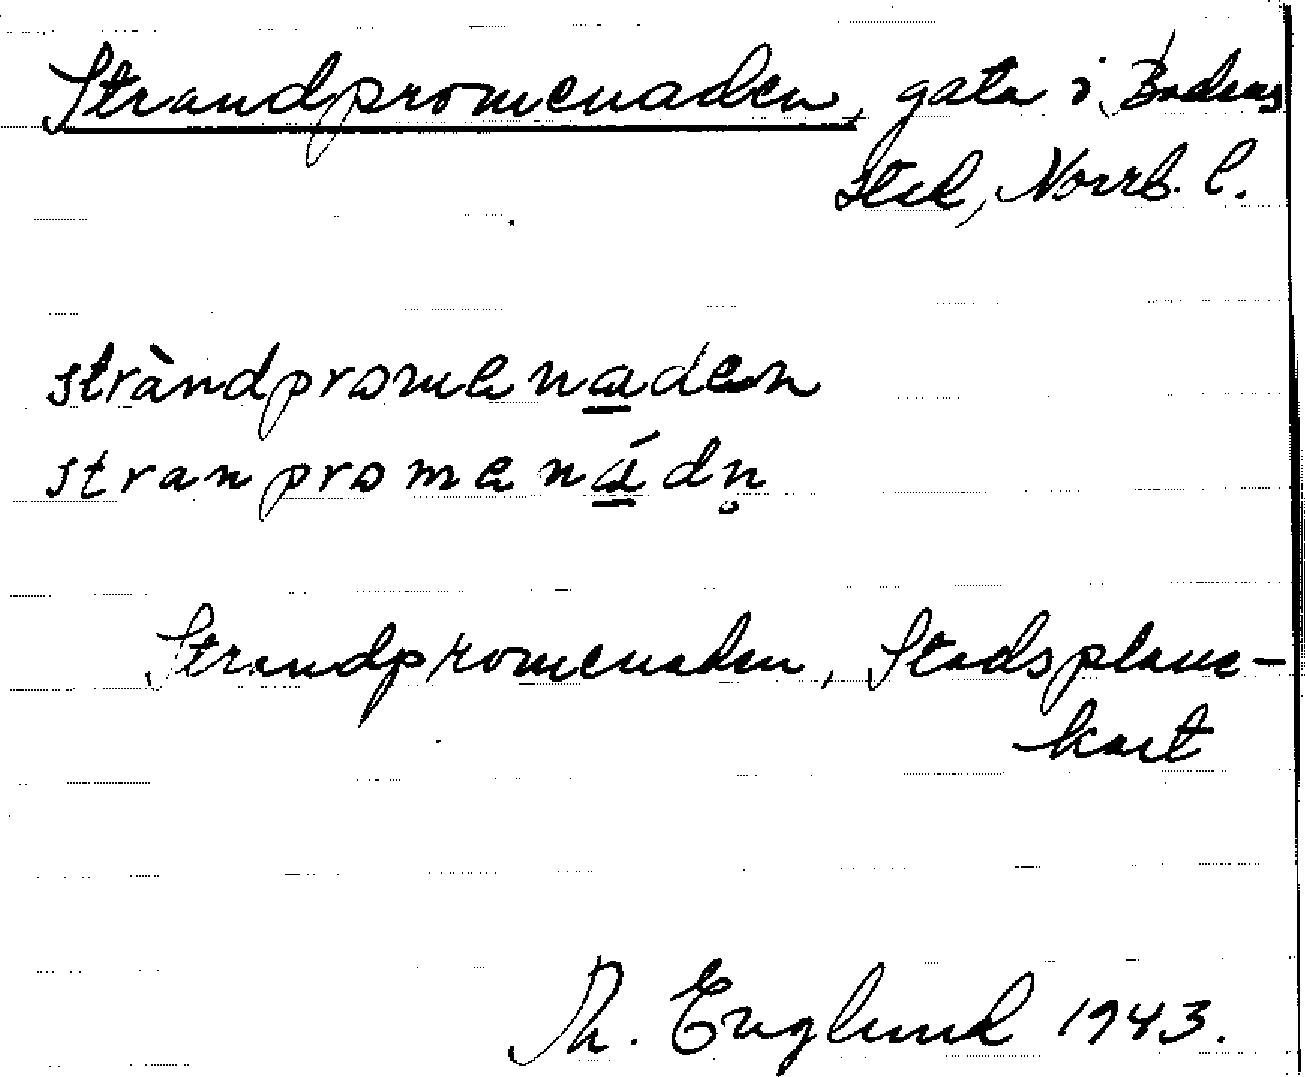 Strandpromenaden, gata i Bodens
stad, Norrb. l.
stràndpromenaden
stranpromenádn̥
Strandpromenaden, Stadsplane-
kart
Th. Englund 1943.